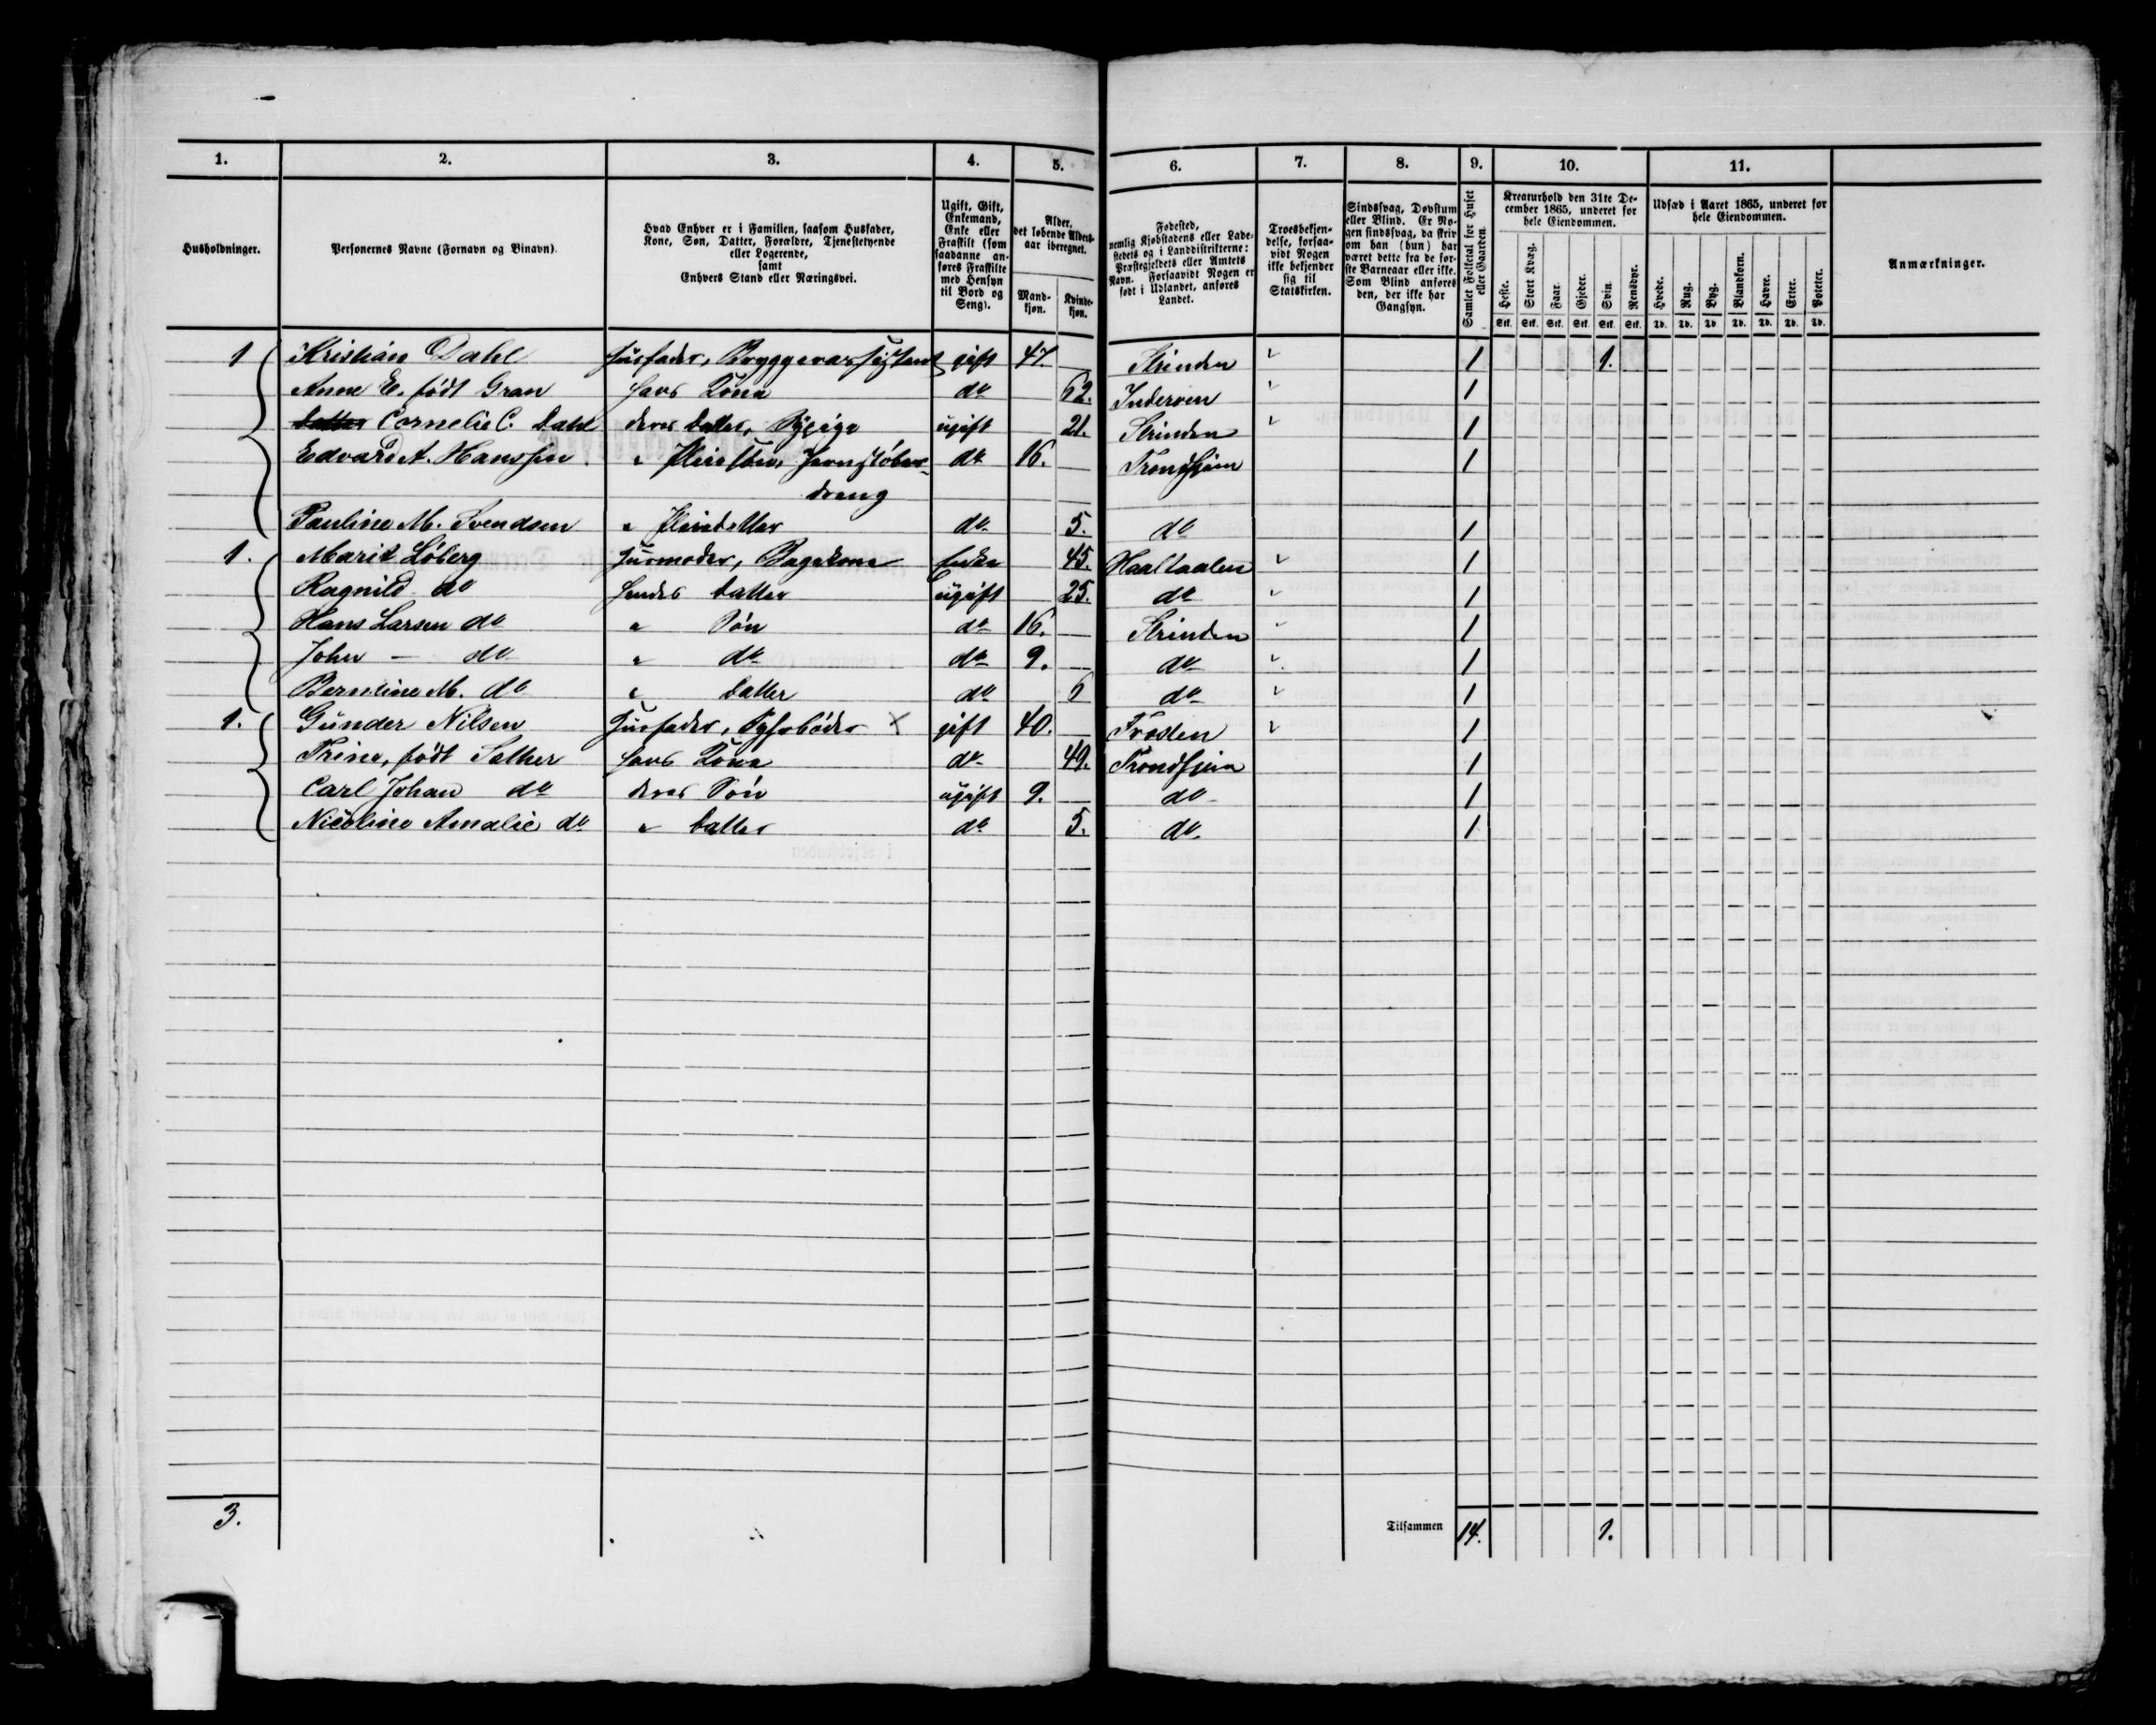 1. 2. 3. 4. 5. 6. 7. 8. 9. 10. 11.
Husholdninger.
Personernes Navne (Fornavn og Binavn).
Hvad Enhver er i Familien, saasom Husfader,
Kone, Søn, Datter, Forældre, Tjenestetyende
eller Logerende,
samt
Enhvers Stand eller Næringsvei.
Ugift, Gift,
Enkemand,
Enke eller
Fraskilt (som
saadanne an-
føres Fraskilte
med Hensyn
til Bord og
Seng).
Alder,
det løbende Alders-
aar iberegnet.
Mand-
kjøn.
Kvinde-
kjøn.
Fødested,
nemlig Kjøbstadens eller Lade-
stedets og i Landdistrikterne:
Præstegjeldets eller Amtets
Navn. Forsaavidt Nogen er
født i Udlandet, anføres
Landet.
Troesbekjen-
delse, forsaa-
vidt Nogen
ikke bekjender
sig til
Statskirken.
Sindssvag, Døvstum
eller Blind. Er No-
gen sindssvag, da skriv
om han (hun) har
været dette fra de før-
ste Barneaar eller ikke.
Som Blind anføres
den, der ikke har
Gangsyn.
Samlet Folketal for Huset
eller Gaarden.
Kreaturhold den 31te De-
cember 1865, underet for
hele Eiendommen.
Heste. Stort Kvæg. Faar. Gjeder. Svin. Rensdyr.
Stk. Stk. Stk. Stk. Stk. Stk.
Udsæd i Aaret 1865, underet for
hele Eiendommen.
Hvede. Rug. Byg. Blandkorn. Havre. Erter. Poteter.
Td. Td. Td. Td. Td. Td. Td.
Anmærkninger.
1 Kristian Dahl Husfader, Bryggerassistent gift 47. Strinden 1 1.
Anne E. født Gran hans Kone do 62. Inderøen 1
Datter Cornelie C. Dahl deres Datter, Sypige ugift 21. Strinden 1
Edvard A. Hanssen " Pleiesøn, Jernstøber- do 16. Trondhjem 1
dreng
Pauline M. Svendsen " Pleiedatter do 5. do 1
1. Marit Løberg Husmoder, Bagekone Enke 45. Haaltaalen 1
Ragnild do hendes Datter ugift 25. do 1
Hans Larsen do " Søn do 16. Strinden 1
John — do " do do 9. do 1
Berntine M. do " Datter do 6 do 1
1. Gunder Nilsen Husfader, Fyrbøder gift 40. Frosten 1
Trine, født Sather hans Kone do 49. Trondhjem 1
Carl Johan do deres Søn ugift 9. do 1
Nicoline Amalie do " Datter do 5. do 1
3. Tilsammen 14. 1.